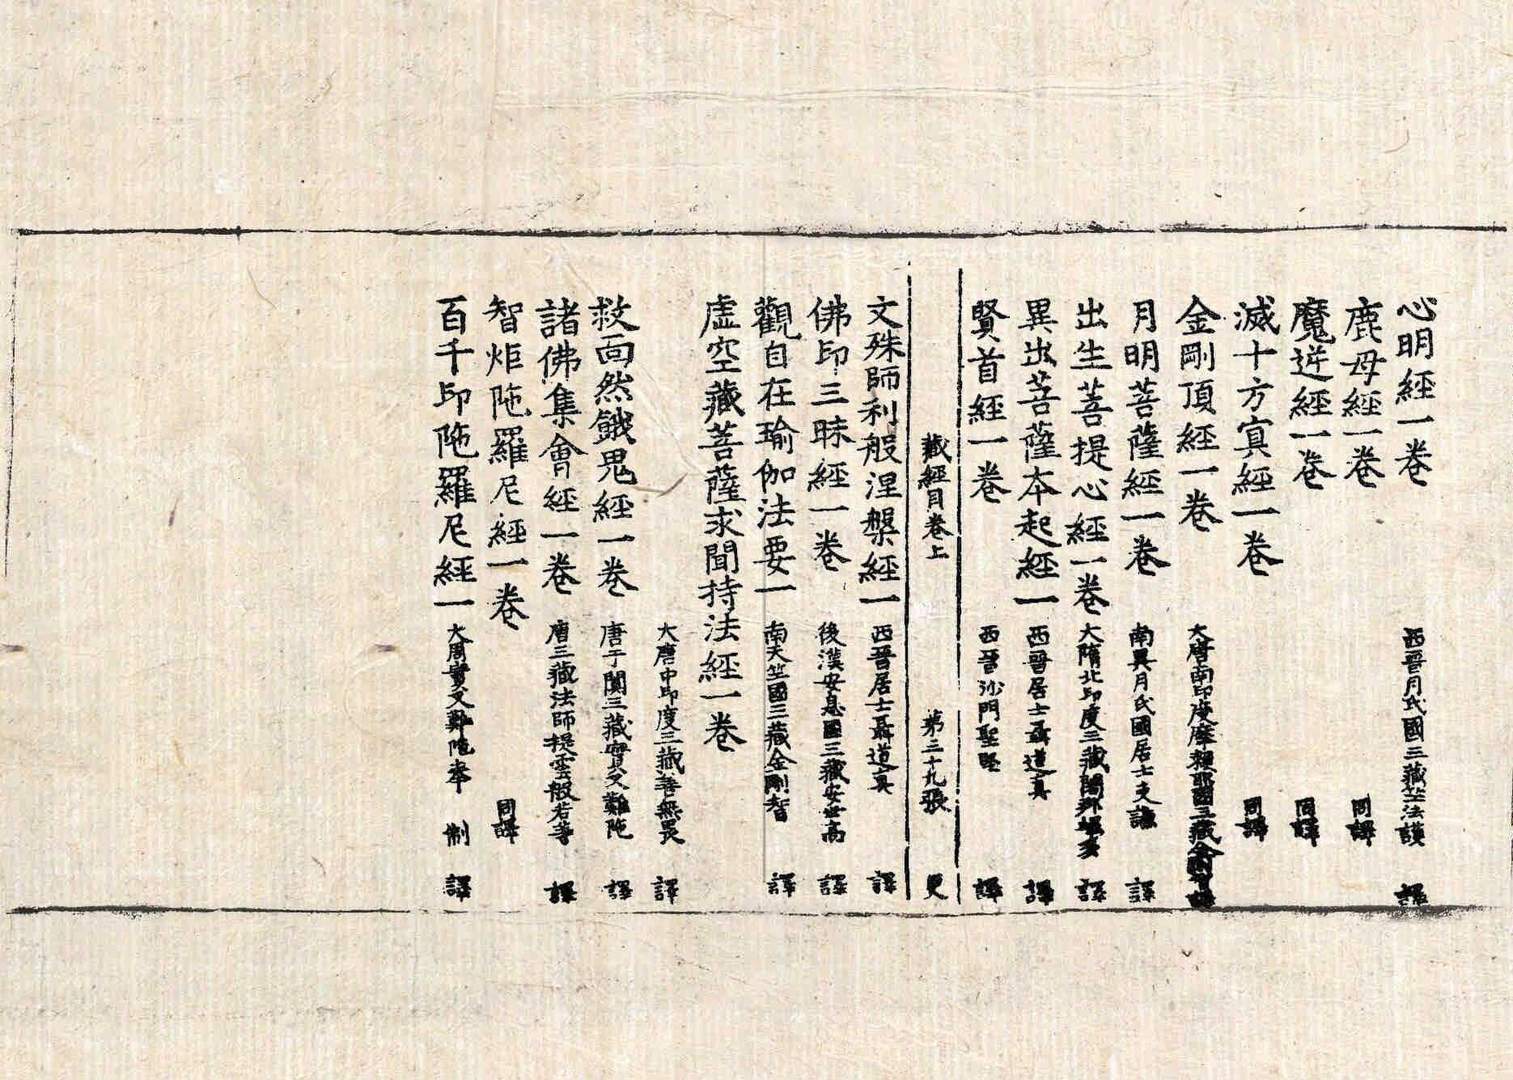 心明經一卷 西晉月氏國三藏竺法護 譯
鹿母經一卷 同譯
魔逆經一卷 同譯
滅十方冥經一卷 同譯
金剛頂經一卷 大唐南印度摩賴耶國三藏金剛智譯
月明菩薩經一卷 南吳月氏國居士支謙 譯
出生菩提心經一卷 大隋北印度三藏闍那崛多 譯
異出菩薩本起經一 西晉居士聶道真 譯
賢首經一卷 西晉沙門聖堅 譯
藏經目卷上 第三十九張 更
文殊師利般涅槃經一 西晉居士聶道真 譯
佛印三昧經一卷 後漢安息國三藏安世高 譯
觀自在瑜伽法要一 南天竺國三藏金剛智 譯
虛空藏菩薩求聞持法經一卷
大唐中印度三藏善無畏 譯
救面然餓鬼經一卷 唐于闐三藏實叉難陁 譯
諸佛集會經一卷 唐三藏法師提雲般若等 譯
智炬陁羅尼經一卷 同譯
百千印陁羅尼經一 大周實叉難陁奉 制 譯